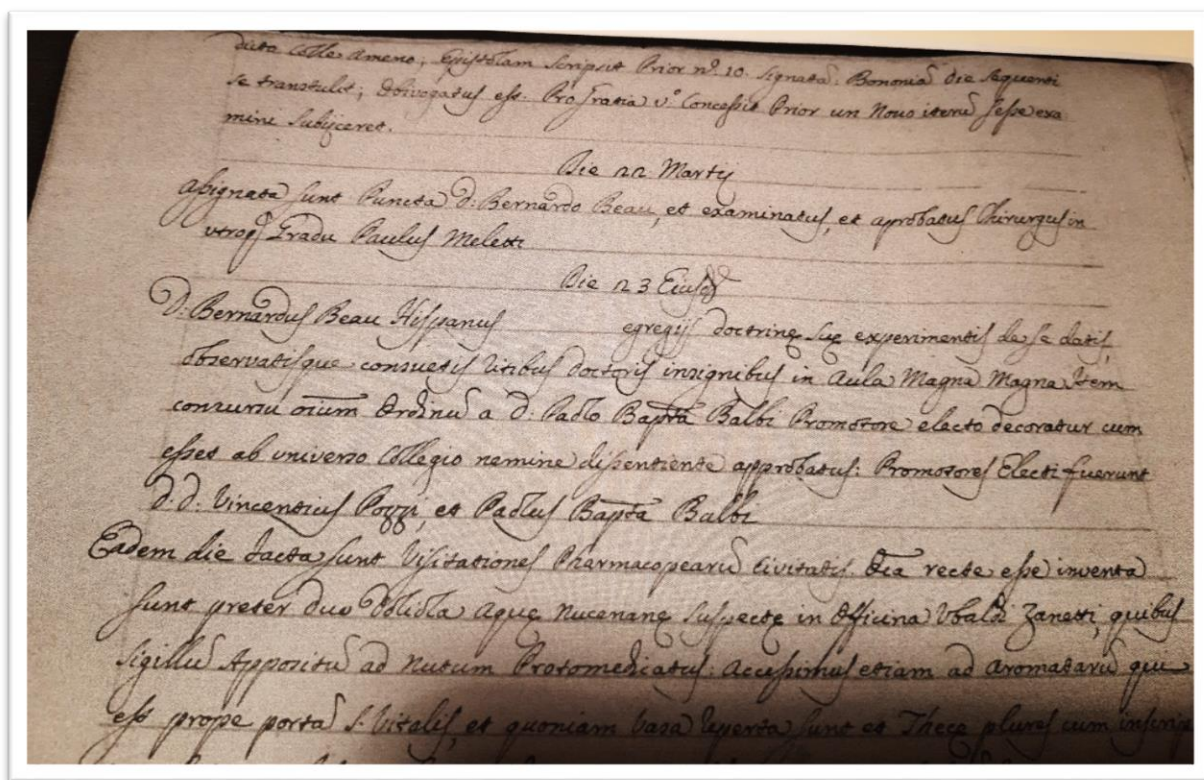 dicta Colle Ameno, Epistolam scripsit Prior nº. 10. signatã. Bononiã die sequenti
se transtulit; est. Pro gratia vº. Concessit Prior un Novo iterũ sese exa
mini subijceret.
Die 22 Martij
assignata sunt Puncta D: Bernardo Beau, et examinatus, et aprobatus Chirurgus in
utroq; Gradu Paulus Meletti
Die 23 Eiusd
D: Bernardus Beau Hispanus egregijs doctrinę suę experimentis de se datis,
observatisque consuetis ritibus doctoris insignibus in Aula Magna Magna Item
concursu oium Ordinũ a D: Paolo Bapta Balbi Promotore electo decoratur cum
esset ab universo Collegio nemine dissentiente approbatus: Promotores Electi fuerunt
D. D: Vincentius Pozzi, et Paolus Bapta Balbi
Eadem die facta sunt Visitationes Pharmacopearũ Civitatis. Oia recte esse inventa
sunt preter duo Doliola Aque Nucerianę suspectę in Officina Ubaldi Zanetti, quibus
sigillũ Appositũ ad nutum Protomedicatus. Accessimus etiam ad Aromatariũ que
est prope portã S. Vitalis, et quoniam vasa aperta sunt et Thecę plures cum